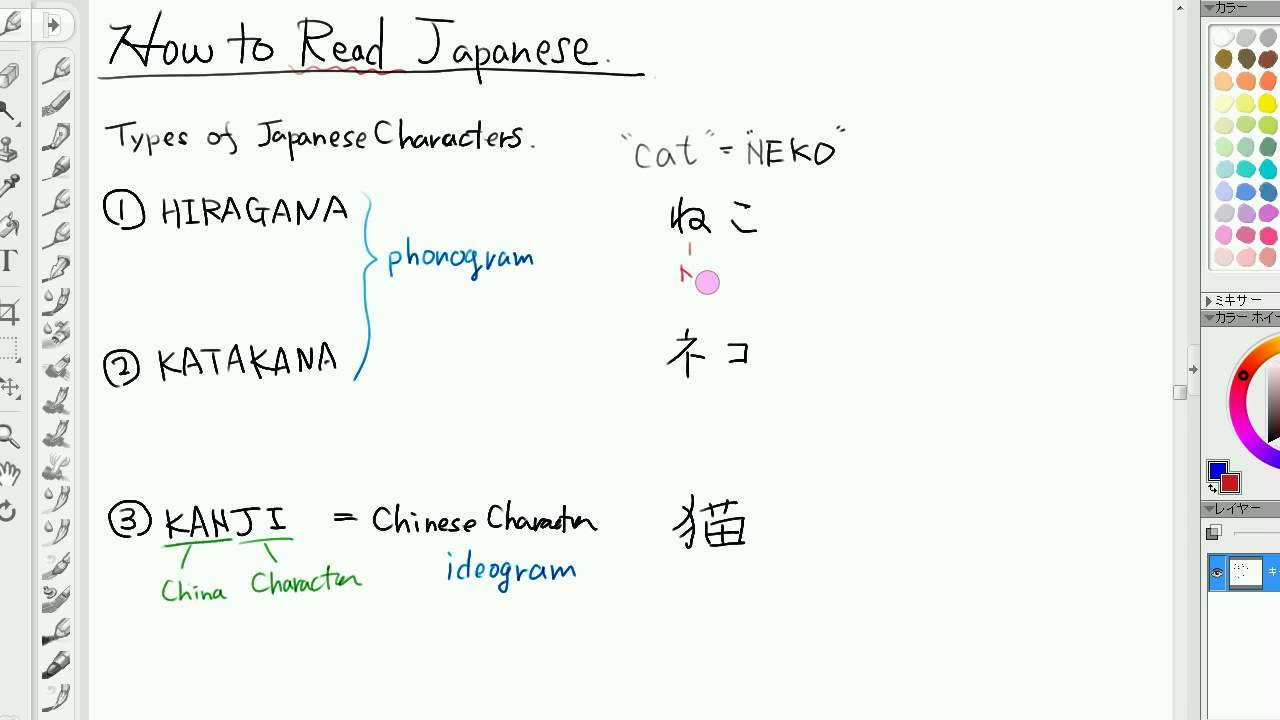 How to Read Japanese.
Types of Japanese Characters.
"cat" = "NEKO"
① HIRAGANA
phonogram
ねこ
② KATAKANA
ネコ
③ KANJI = Chinese Character
猫
China Character
ideogram
カラー
ミキサー
カラー ホイー
レイヤー
T
キ